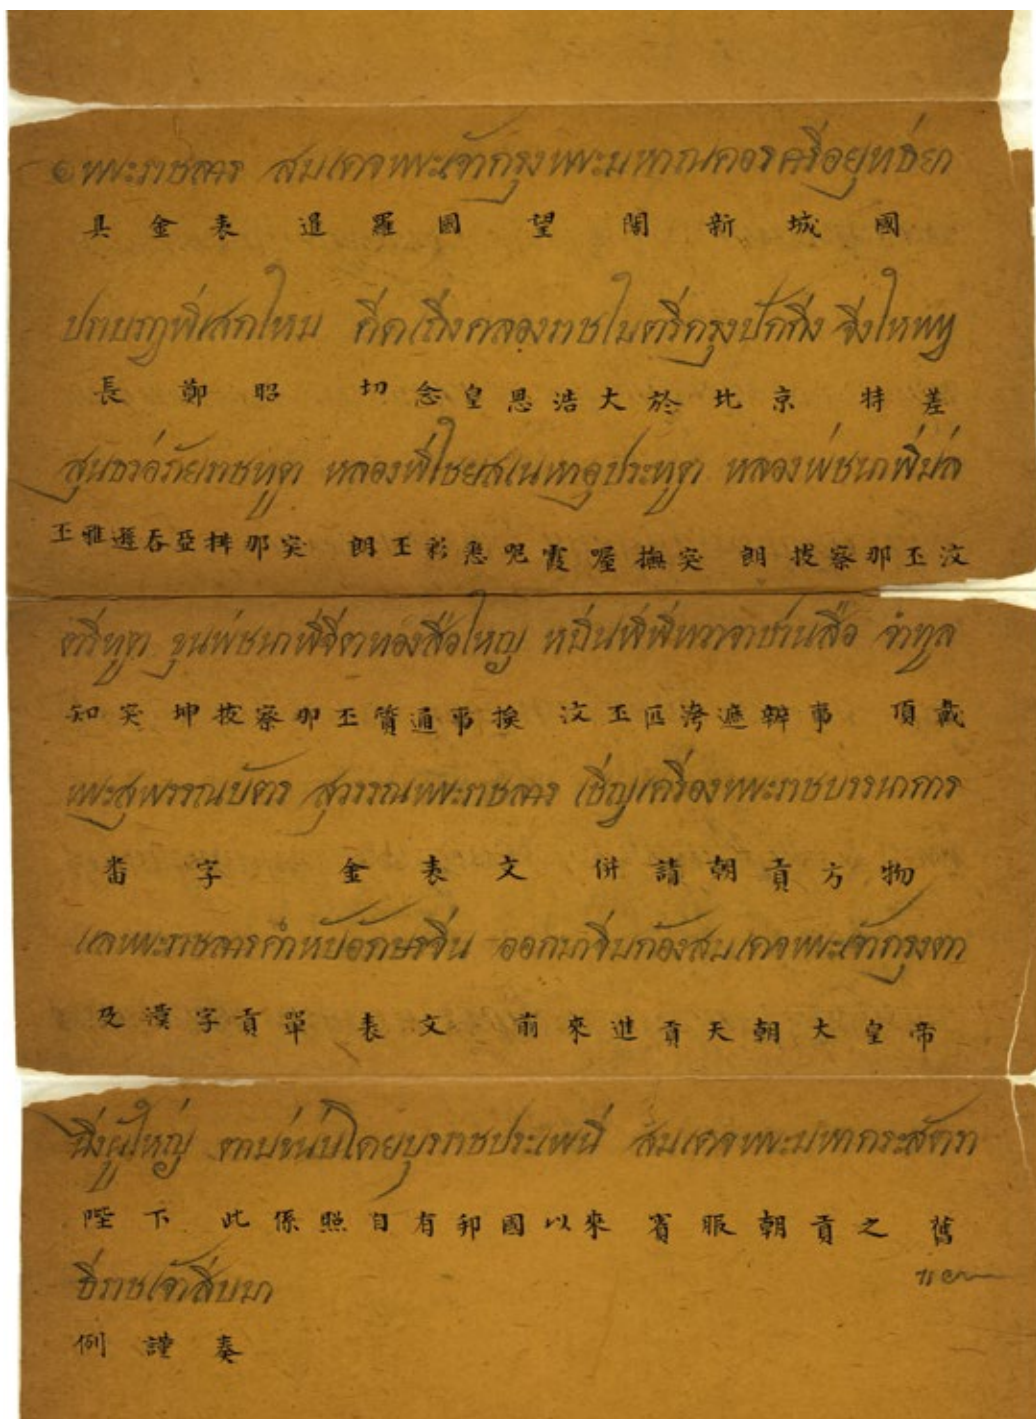 ๏ พระราชสาร สมเดจพระเจ้ากรุงพระมหาณคอรศรีอยุทธยา
具金表暹羅國望閣新城國
ปราบฎาพิเสกใหม คิดเถิงคลองราชไมตรีกรุงปักกิ่ง จึ่งใหพญ
長鄭昭 切念皇恩浩大於北京 特差
สุนธรอ้ภัยราชทูตา หลวงพิไชยสเนหาอุประทูตา หลวงพ่จนาพิม่ล
丕雅遜吞亞排那突 朗丕彩悉呢霞喔撫突 朗拔察那丕汶
ตรีทูตา ขุนพ่จนาพิจิตาทองสือใหญ หมื่นพิพิทวาจาปานสือ จำทูล
知突 坤拔察那丕質通事挨 汶丕匹洿遮辦事 頂戴
พระสุพรรณบัตร สุวรรณพระราชสาร เชิญเครื่องพระราชบรรนาการ
畨字 金表文 併請朝貢方物
แลพระราชสารคำหับอักษรจีน ออกมาจิ้มก้องสมเดจพระเจ้ากรุงตา
及漢字貢單 表文 前來進貢天朝大皇帝
ฉิ่งผู้ใหญ่ ตามขนับโดยบุรราชประเพนี สัมเดจพระมหากระสัตรา
陛下 此係照自有邦國以來賓服朝貢之舊
ธีราชเจ้าสืบมา
例謹奏